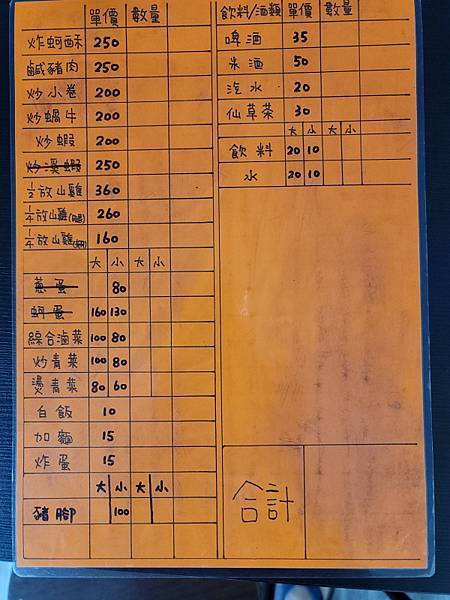 單價 數量
炸蚵酥 250
鹹豬肉 250
炒小卷 200
炒蝸牛 200
炒蝦 200
炒溪蝦 250
½放山雞 360
¼放山雞(腿) 260
¼放山雞 160
大 小 大 小
蔥蛋 80
蚵蛋 160 130
綜合滷菜 100 80
炒青菜 100 80
燙青菜 80 60
白飯 10
加麵 15
炸蛋 15
大 小 大 小
豬腳 100
飲料/酒類 單價 數量
啤酒 35
米酒 50
汽水 20
仙草茶 30
大 小 大 小
飲料 20 10
水 20 10
合計